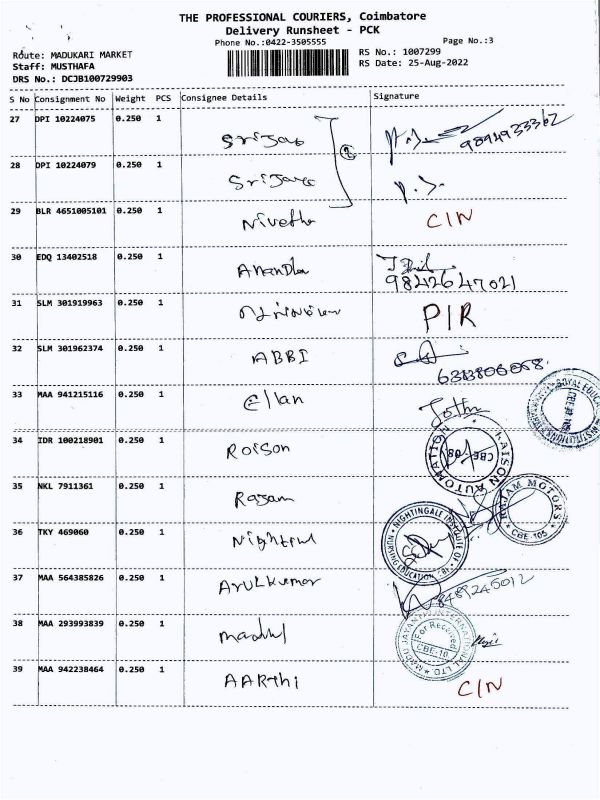 THE PROFESSIONAL COURIERS, Coimbatore
Delivery Runsheet - PCK
Phone No.:0422-3505555
Page No.:3
Route: MADUKARI MARKET
Staff: MUSTHAFA
DRS No.: DCJB100729903
RS No.: 1007299
RS Date: 25-Aug-2022
S No Consignment No Weight PCS Consignee Details Signature
27 DPI 10224075 0.250 1 9894933362
28 DPI 10224079 0.250 1
29 BLR 4651005101 0.250 1 Nivetha CIN
30 EDQ 13402518 0.250 1 Anandha 9842647021
31 SLM 301919963 0.250 1 PIR
32 SLM 301962374 0.250 1 ABBI
33 MAA 941215116 0.250 1 Ellan
ROYAL EDUC
INSTITUTIONS
34 IDR 100218901 0.250 1 Roison
RAISON AUTOMATION
CBE
35 NKL 7911361 0.250 1 Rajam
RAJAM MOTORS
CBE-105
36 TKY 469060 0.250 1
NIGHTINGALE INSTITUTE OF NURSING EDUCATION
37 MAA 564385826 0.250 1 Arulkumar 8489246012
38 MAA 293993839 0.250 1
MADU JAYANTHI INTERNATIONAL LTD
For Received
CBE-10
39 MAA 942238464 0.250 1 AARthi CIN